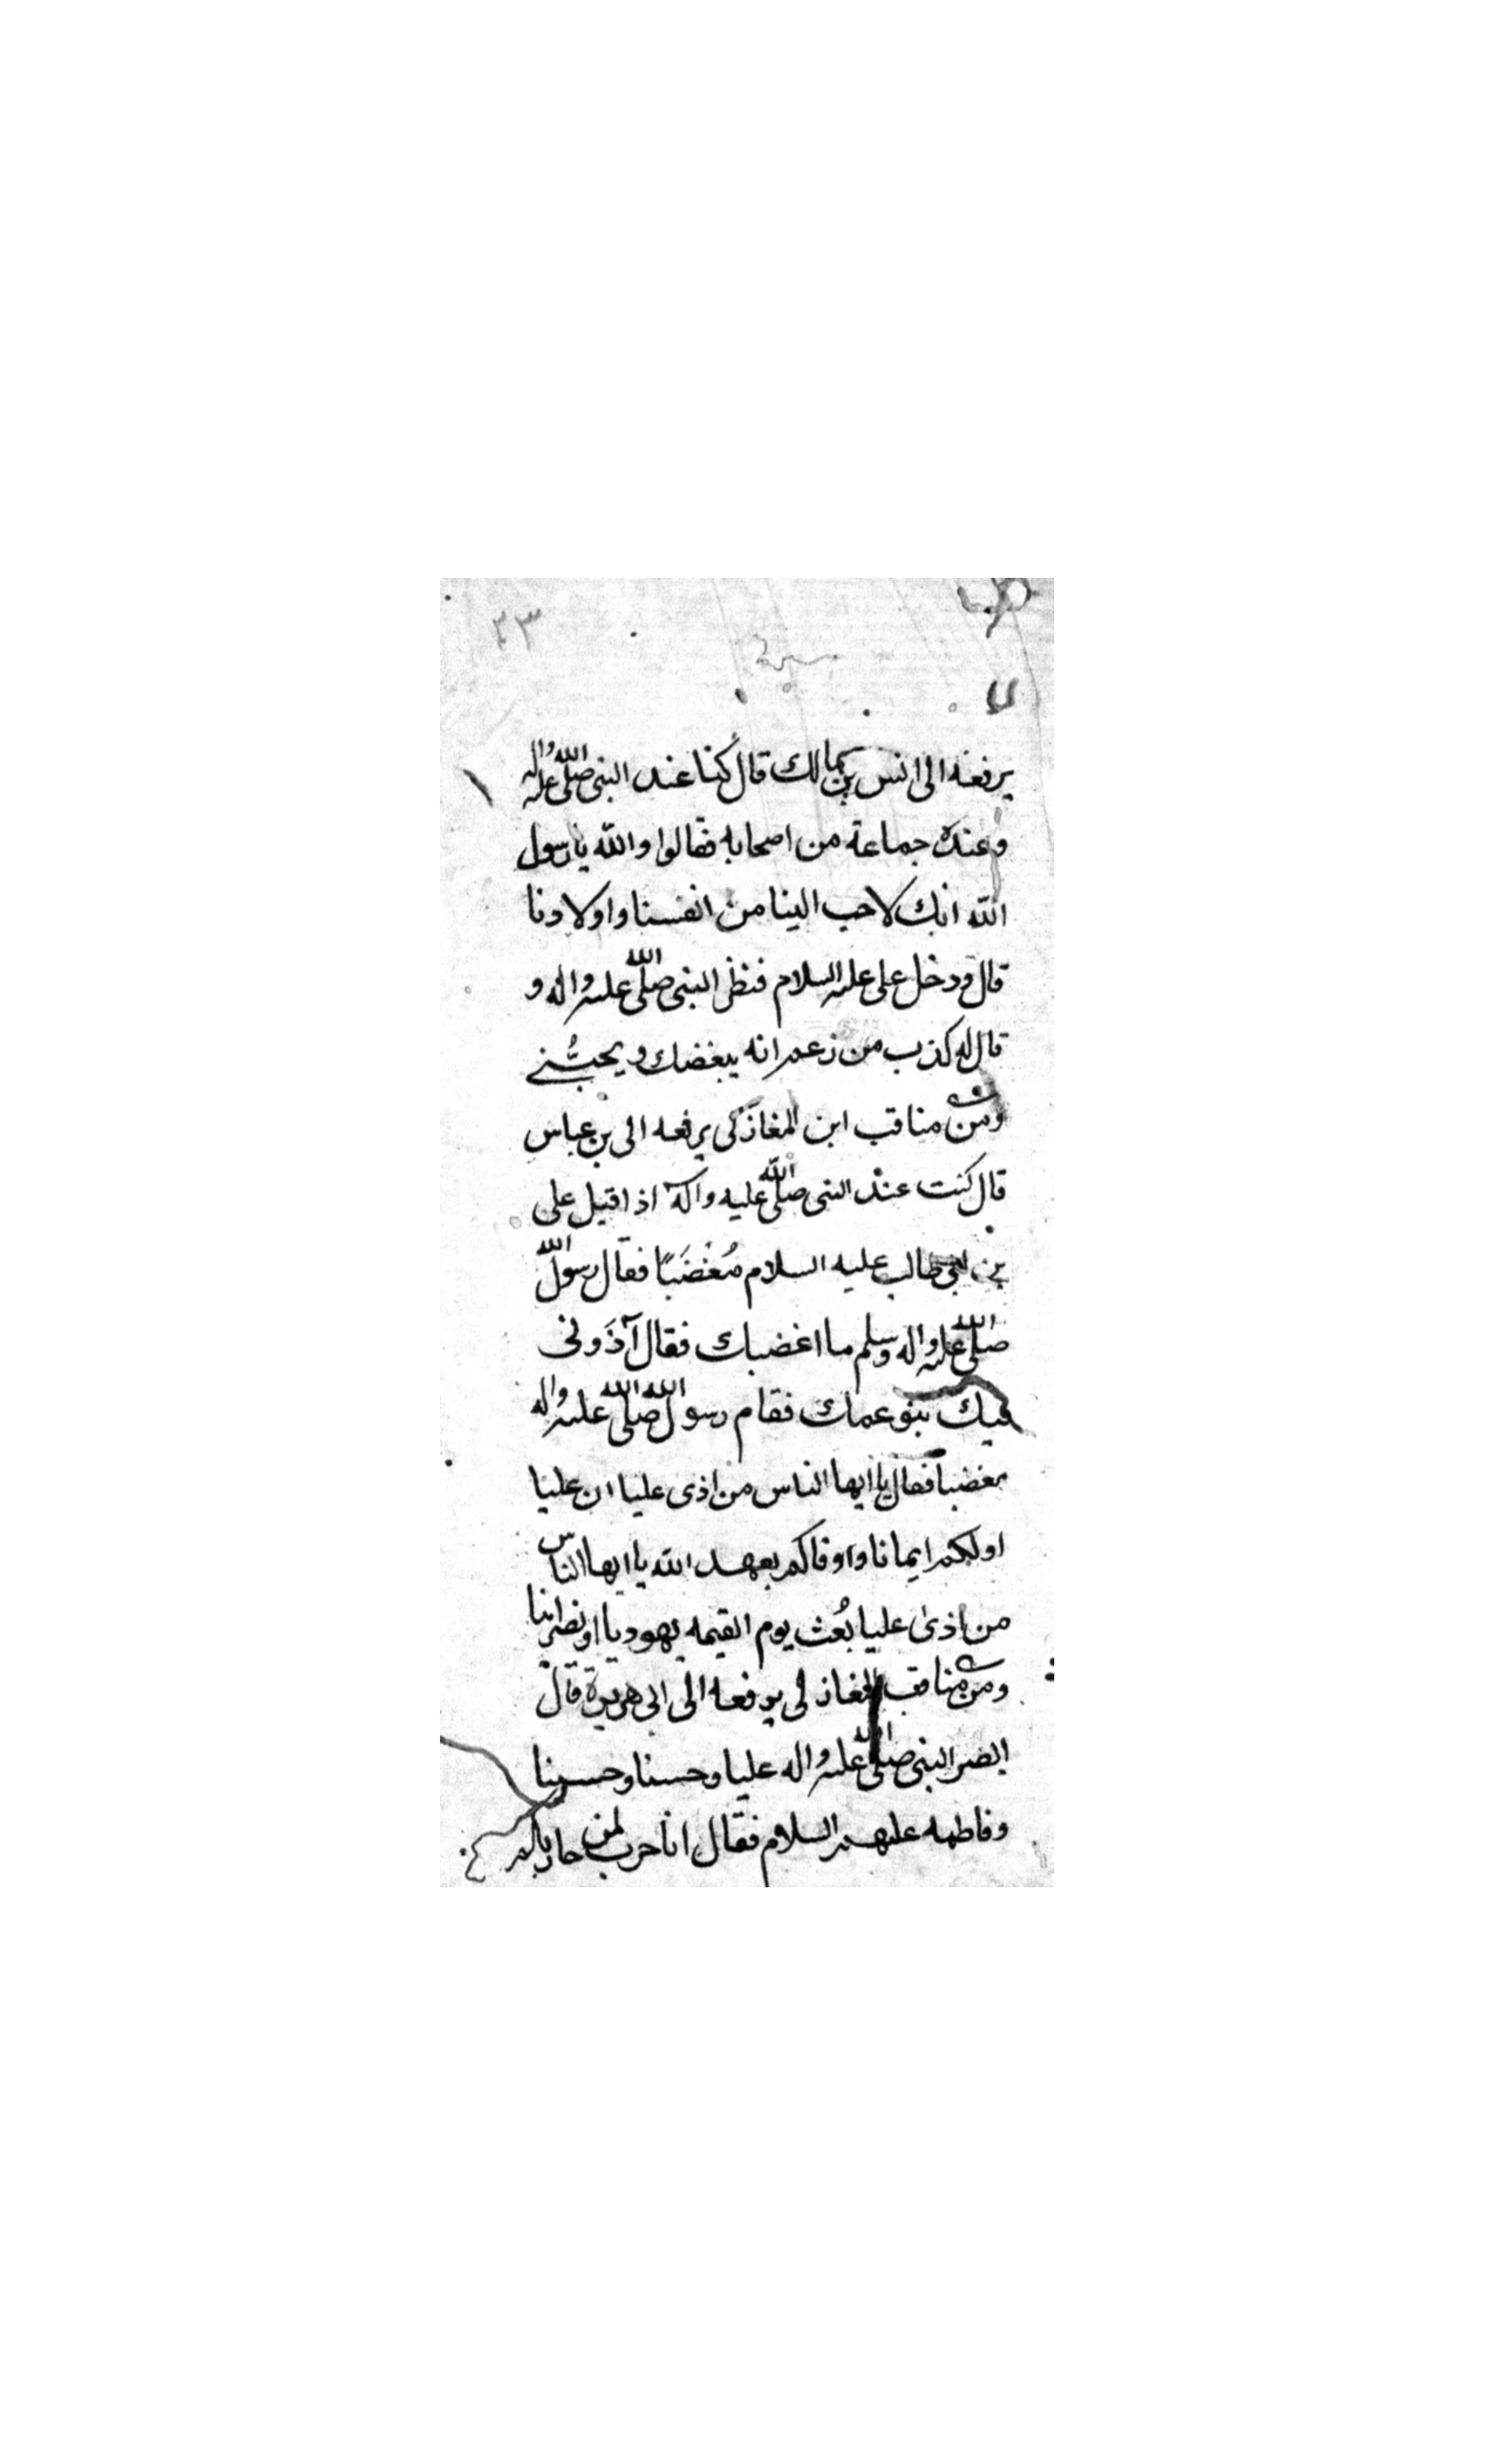 ٢٣
يرفعه الى انس بن مالك قال كنا عند النبى صلى الله عليه واله
وعنده جماعة من اصحابه فقالوا والله يا رسول
الله انك لاحب الينا من انفسنا واولادنا
قال ودخل على عليه السلام فنظر النبى صلى الله عليه واله و
قال له كذب من زعم انه يبغضك ويحبُّنى
ومن مناقب ابن المغازلى يرفعه الى بن عباس
قال كنت عند النبى صلى الله عليه وآله اذا اقبل على
بن ابى طالب عليه السلام مُغْضَبًا فقال رسول الله
صلى الله عليه واله وسلم ما اغضبك فقال آذَونى
فيك بنو عمك فقام رسول الله صلى الله عليه واله
مغضبا فقال يا ايها الناس من اذى عليا ان عليا
اولكم ايمانا واوفاكم بعهد الله يا ايها الناس
من اذى عليا بُعث يوم القيمه يهوديا او نصرانيا
ومن مناقب المغازلى يرفعه الى ابى هريرة قال
ابصر النبى صلى الله عليه واله عليا وحسنا وحسينا
وفاطمه عليهم السلام فقال انا حرب لمن حاربكم